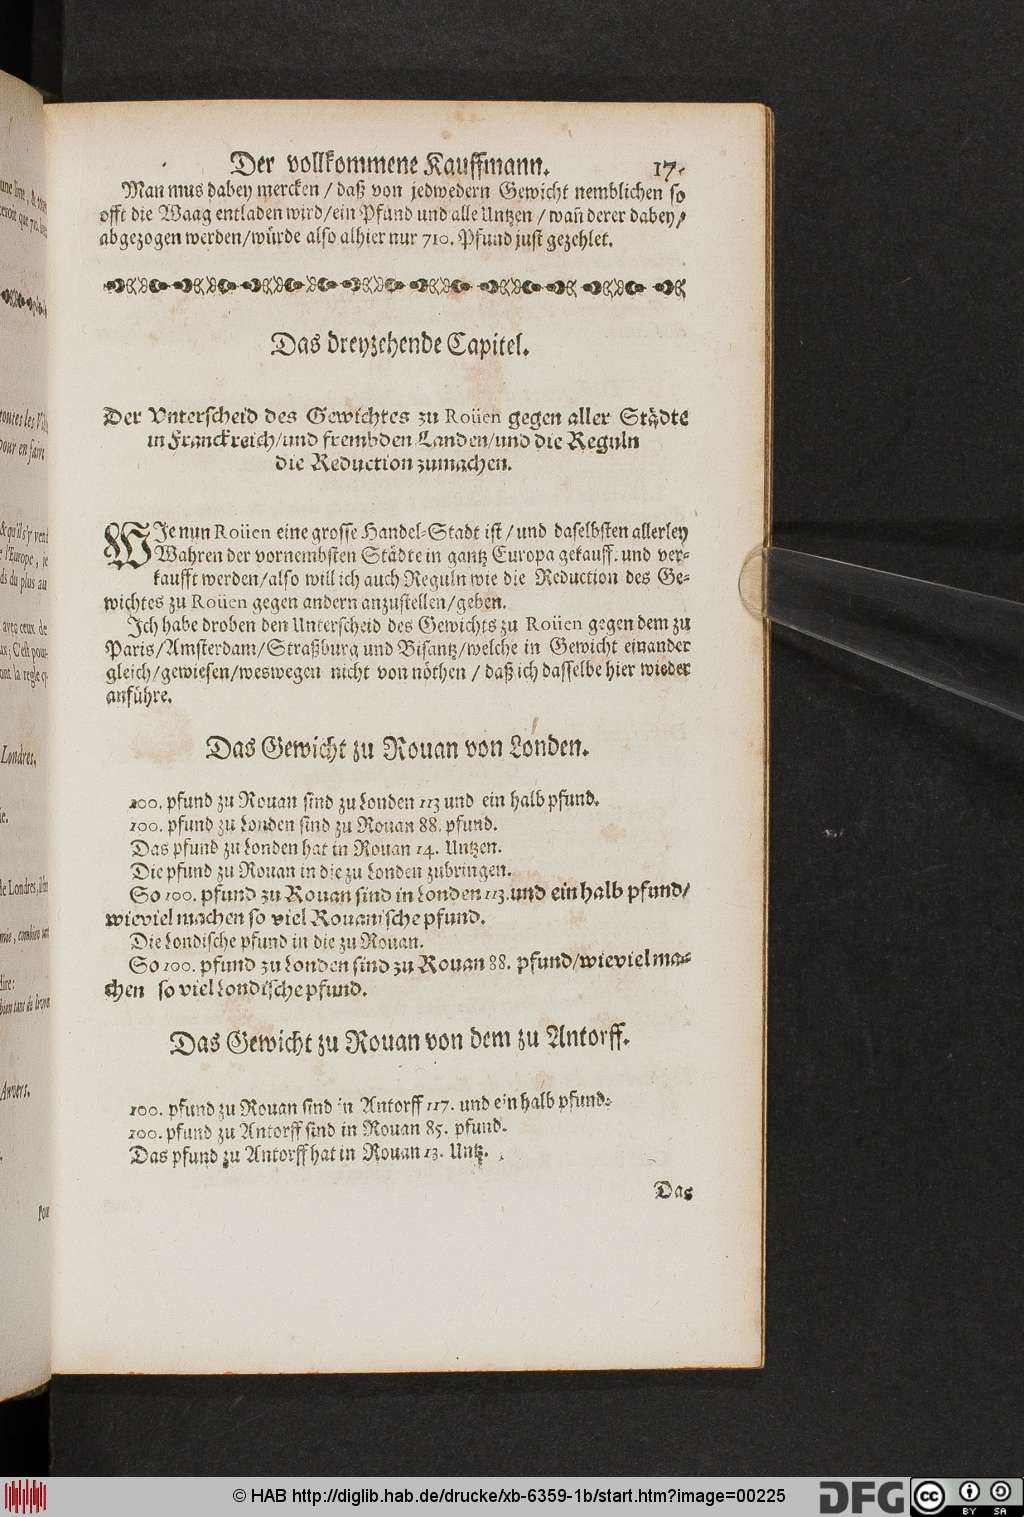 Der vollkommene Kauffmann. 17.
Man mus dabey mercken / daß von jedwedern Gewicht nemblichen so
offt die Waag entladen wird / ein Pfund und alle Untzen / wañ derer dabey /
abgezogen werden / würde also alhier nur 710. Pfund just gezehlet.
Das dreyzehende Capitel.
Der Vnterscheid des Gewichtes zu Roüen gegen aller Städte
in Franckreich / und frembden Landen / und die Reguln
die Reduction zumachen.
WIe nun Roüen eine grosse Handel-Stadt ist / und daselbsten allerley
Wahren der vornembsten Städte in gantz Europa gekauff. und ver-
kaufft werden / also will ich auch Reguln wie die Reduction des Ge-
wichtes zu Roüen gegen andern anzustellen / geben.
Ich habe droben den Unterscheid des Gewichts zu Roüen gegen dem zu
Paris / Amsterdam / Straßburg und Bisantz / welche in Gewicht einander
gleich / gewiesen / weswegen nicht von nöthen / daß ich dasselbe hier wieder
anführe.
Das Gewicht zu Rouan von Londen.
100. pfund zu Rouan sind zu Londen 113 und ein halb pfund.
100. pfund zu Londen sind zu Rouan 88. pfund.
Das pfund zu Londen hat in Rouan 14. Untzen.
Die pfund zu Rouan in die zu Londen zubringen.
So 100. pfund zu Rouan sind in Londen 113. und ein halb pfund /
wieviel machen so viel Rouanische pfund.
Die Londische pfund in die zu Rouan.
So 100. pfund zu Londen sind zu Rouan 88. pfund / wieviel ma-
chen so viel Londische pfund.
Das Gewicht zu Rouan von dem zu Antorff.
100. pfund zu Rouan sind in Antorff 117. und ein halb pfund.
100. pfund zu Antorff sind in Rouan 85. pfund.
Das pfund zu Antorff hat in Rouan 13. Untz.
Das
toutes les Vil
pour en fair
& qu'il s'y vend
l'Europe, je
ds du plus au
avec ceux de
Londres.
de Londres,
Anvers.
Pour
© HAB http://diglib.hab.de/drucke/xb-6359-1b/start.htm?image=00225
DFG
cc
BY SA